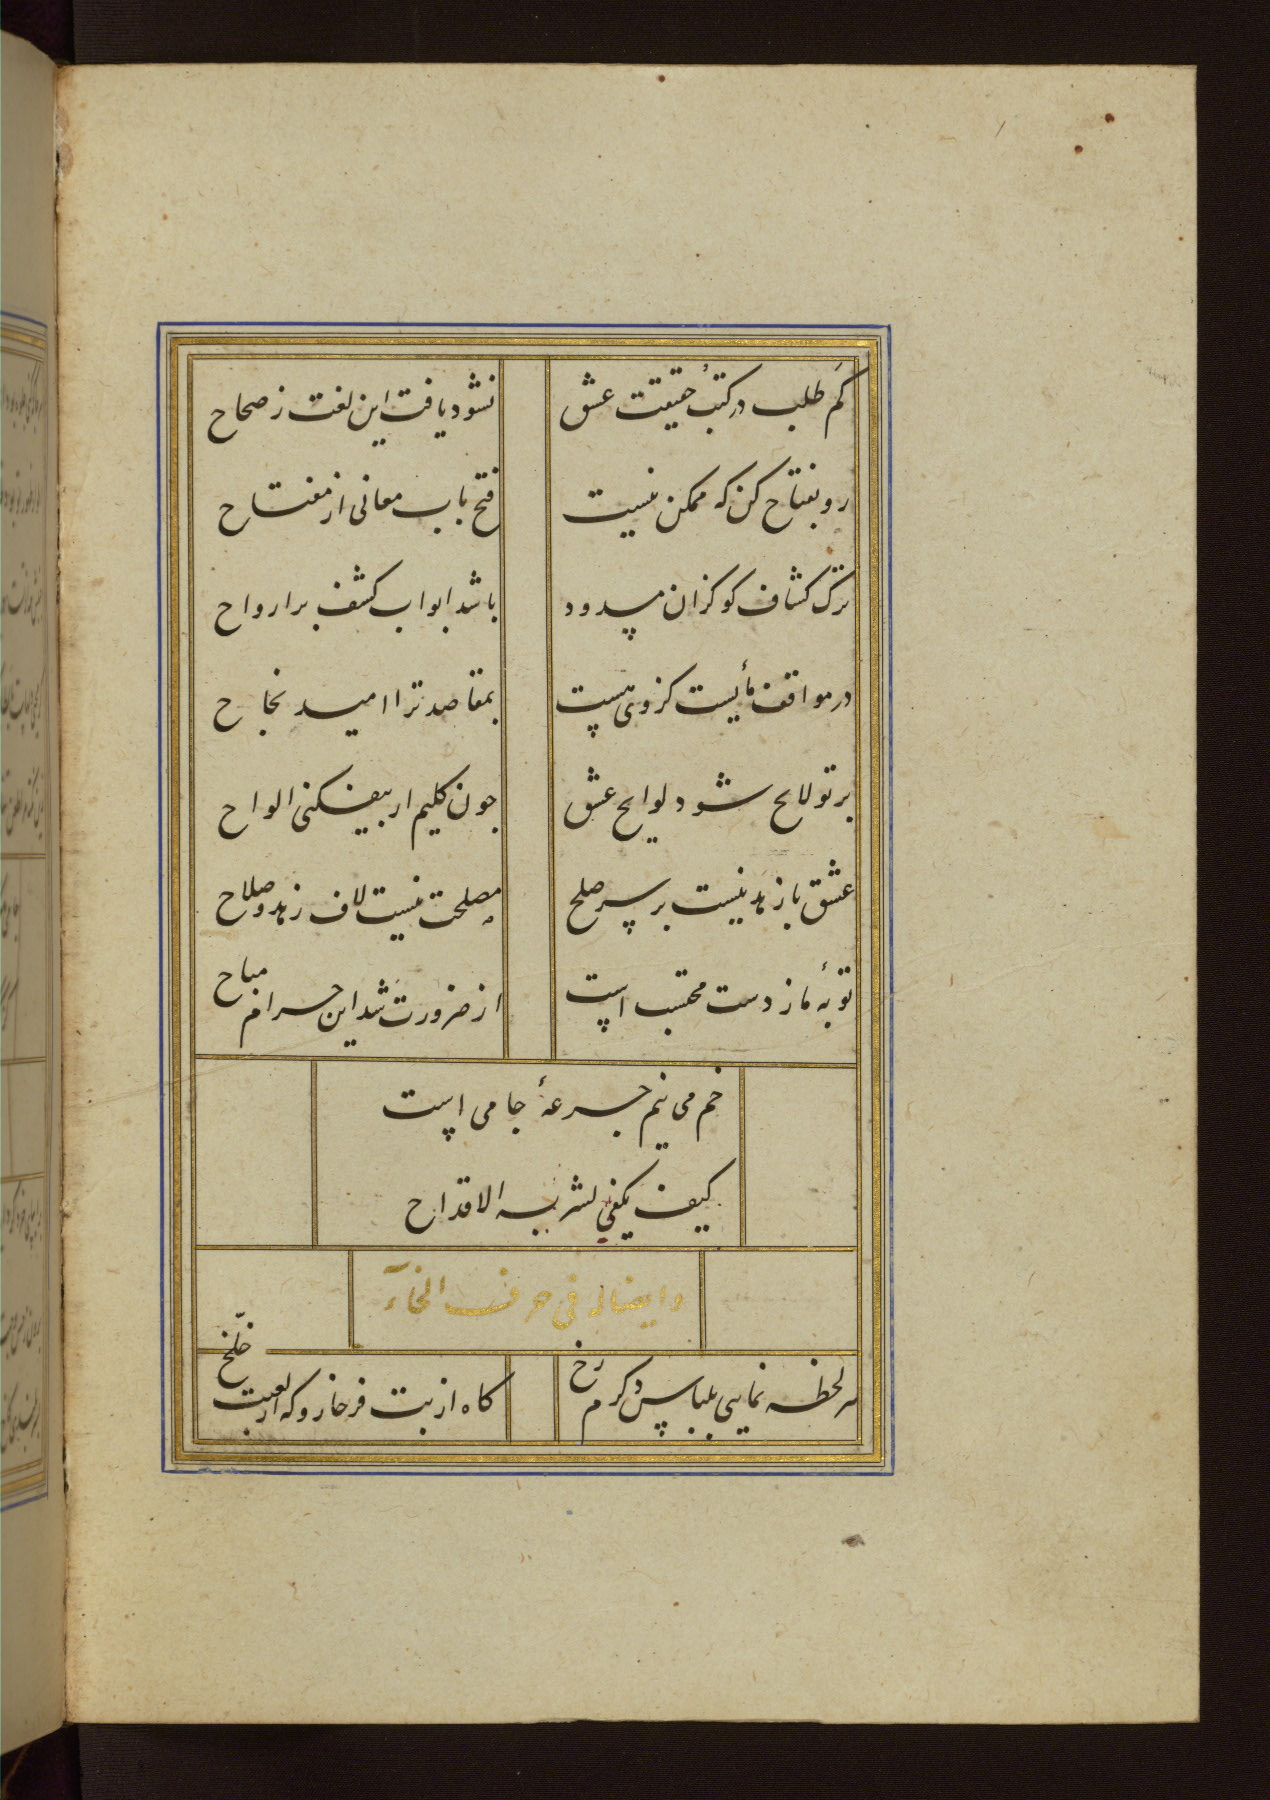 کم طلب در کتب حقیقت عشق نشود یافت این لغت ز صحاح
رو بفتاح کن که ممکن نیست فتح باب معانی از مفتاح
ترک کشاف کو کزان مسدود باشد ابواب کشف بر ارواح
در مواقف مأیست کز وی نیست بمقاصد ترا امید نجاح
بر تو لایح شود لوایح عشق جون کلیم ار بیفکنی الواح
عشق با زهد نیست بر سر صلح مصلحت نیست لاف زهد و صلاح
توبهٔ ما ز دست محتسب است از ضرورت شد این حرام مباح
خم می نیم جرعهٔ جامی است
کیف یکفی لشربه الاقداح
و ایضا له فی حرف الخاء
هر لحظه نمایی بلباس دکرم رخ کاه از بت فرخار و که از لعبت خلخ